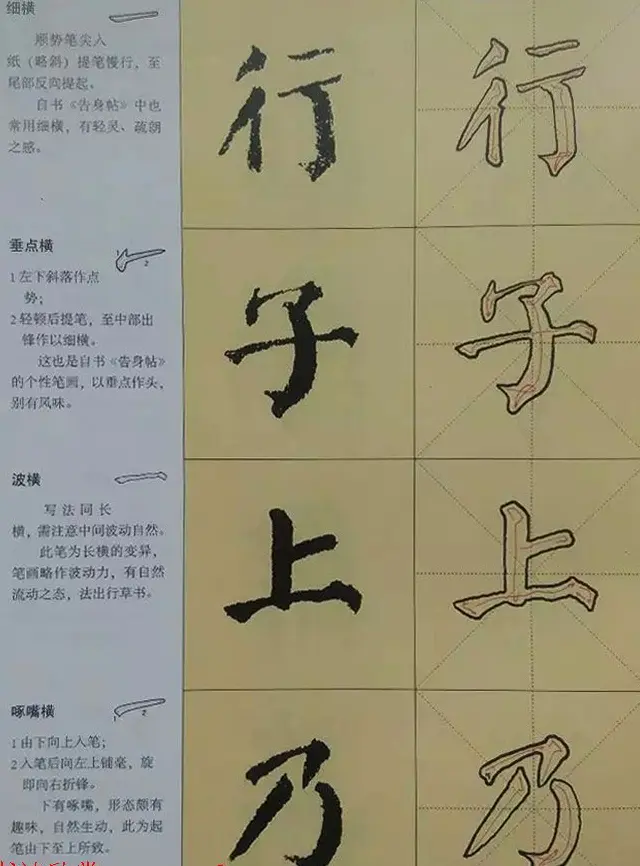 细横
顺势笔尖入
纸（略斜）提笔慢行，至
尾部反向提起。
自书《告身帖》中也
常用细横，有轻灵、疏朗
之感。
行
行
垂点横
1
2
1 左下斜落作点
势；
2 轻顿后提笔，至中部出
锋作以细横。
这也是自书《告身帖》
的个性笔画，以垂点作头，
别有风味。
子
子
波横
写法同长
横，需注意中间波动自然。
此笔为长横的变异，
笔画略作波动力，有自然
流动之态，法出行草书。
上
上
啄嘴横
1
2
1 由下向上入笔；
2 入笔后向左上铺毫，旋
即向右折锋。
下有啄嘴，形态颇有
趣味，自然生动，此为起
笔由下至上所致。
乃
乃